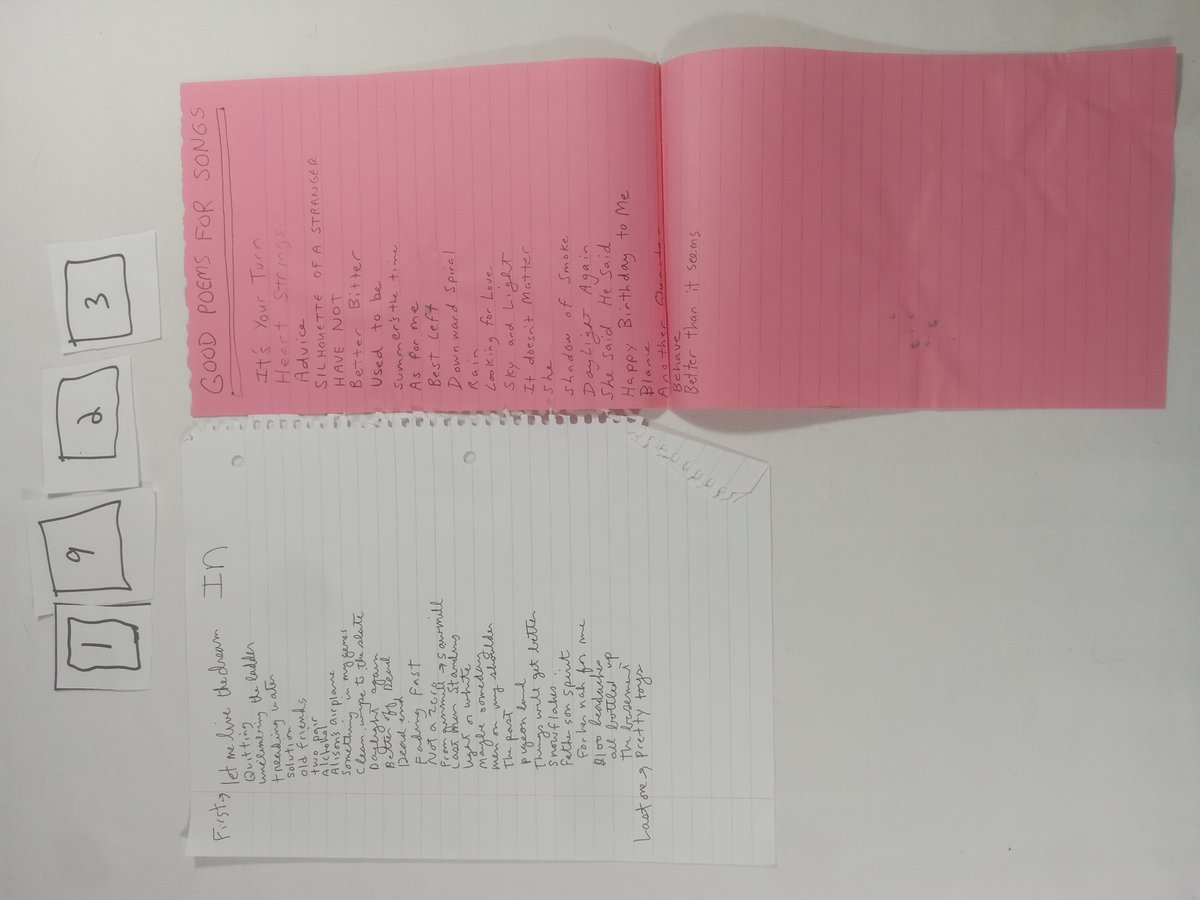 1 9 2 3
First → let me live the dream In
Quitting
unclimbing the ladder
treading water
solution
old friends
two pair
Alcohol
Alison's airplane
Something in my genes
Clean wipe to the slate
Daylight again
Better off Dead
Dead end
Fading Fast
Not a zero
From → sawmill
Last man Standing
light or white
Maybe someday
men on my shoulder
The past
pigeon land
Things will get better
Snowflakes
Patterson Spirit
For her nah for me
$100 headaches
all bottled up
the basement
Last one → Pretty toys
GOOD POEMS FOR SONGS
It's Your Turn
Heart Strings
Advice
SILHOUETTE OF A STRANGER
HAVE NOT
Better Bitter
Used to be
summer's the time
As for me
Best Left
Downward Spiral
Rain
Looking for Love
Sky and Light
It doesn't Matter
She
Shadow of Smoke
Daylight Again
She Said He Said
Happy Birthday to Me
Blame
Another
Behave
Better than it seems